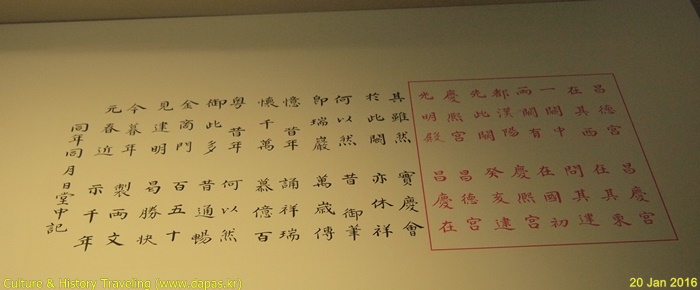 昌德宮 昌慶宮
在其西 在其東
一闢中 問其運
兩闕有 在國初
都漢陽 慶熙宮
先此闕 癸亥建
慶熙宮 昌德宮
光明殿 昌慶在
其雖然 實慶會
於此闕 亦休祥
何以然 昔御筆
卽瑞巖 萬歲傳
憶昔年 誦祥瑞
懷千萬 慕億百
粤昔年 何以然
御此多 昔通暢
金商門 百五十
見建明 曷勝快
今暮年 製兩文
元春近 示千年
同年同月日堂中記
Culture & History Traveling (www.dapas.kr)
20 Jan 2016